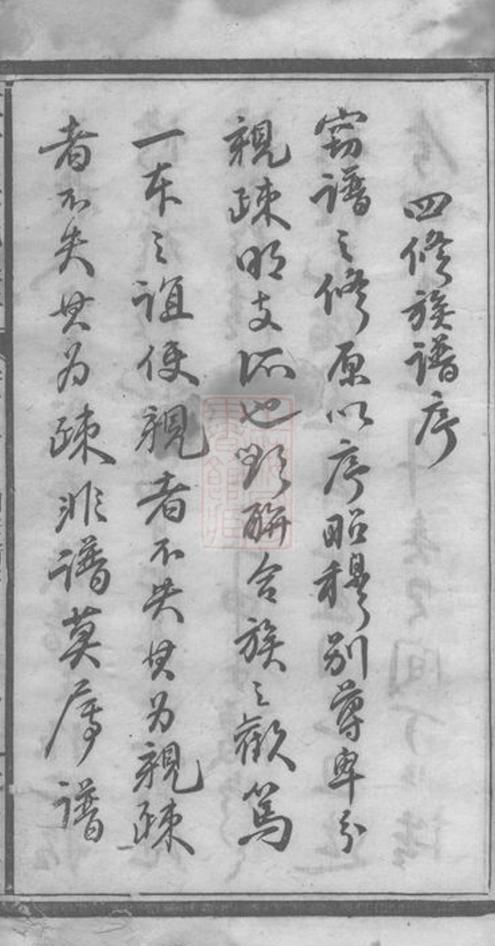 四修族譜序
竊譜之修原以序昭穆別尊卑分
親疎明支派也欵聯合族之歡篤
一本之誼使親者不失其为親疎
者不失其为疎非譜莫屬譜